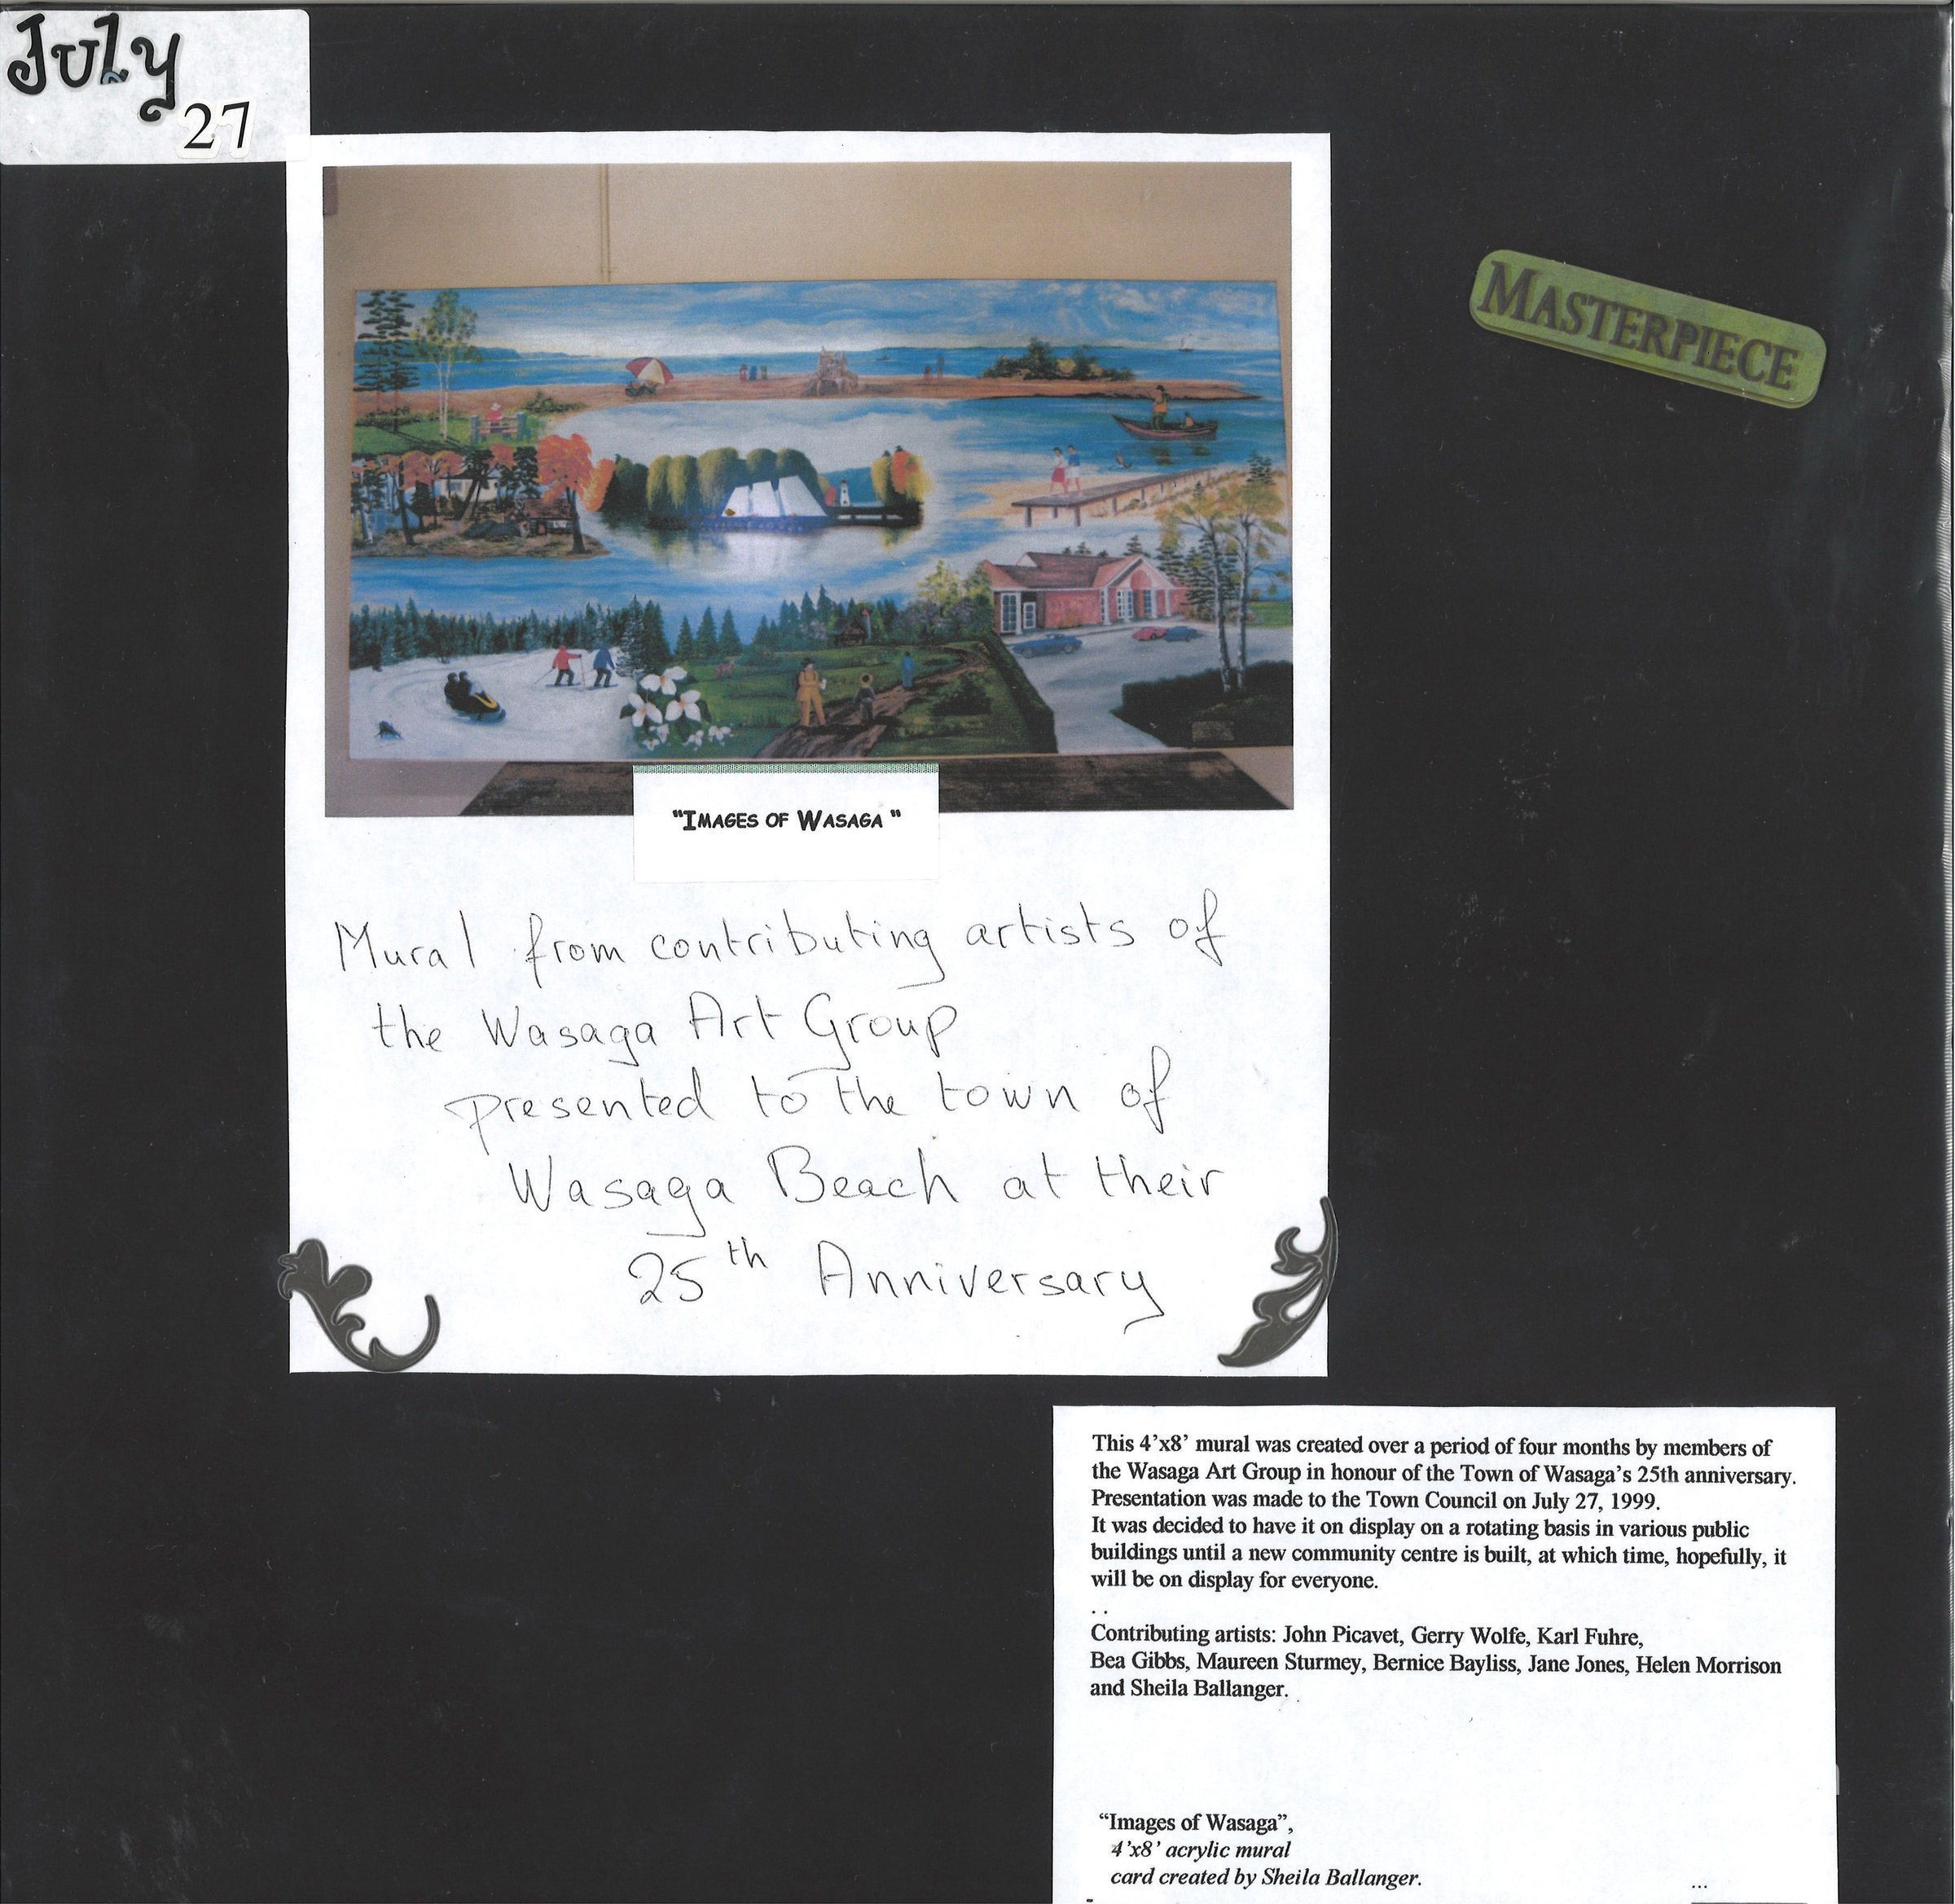 July
27
MASTERPIECE
"IMAGES OF WASAGA"
Mural from contributing artists of
the Wasaga Art Group
presented to the town of
Wasaga Beach at their
25th Anniversary
This 4'x8' mural was created over a period of four months by members of
the Wasaga Art Group in honour of the Town of Wasaga's 25th anniversary.
Presentation was made to the Town Council on July 27, 1999.
It was decided to have it on display on a rotating basis in various public
buildings until a new community centre is built, at which time, hopefully, it
will be on display for everyone.
. .
Contributing artists: John Picavet, Gerry Wolfe, Karl Fuhre,
Bea Gibbs, Maureen Sturmey, Bernice Bayliss, Jane Jones, Helen Morrison
and Sheila Ballanger.
“Images of Wasaga”,
4'x8' acrylic mural
card created by Sheila Ballanger.
...